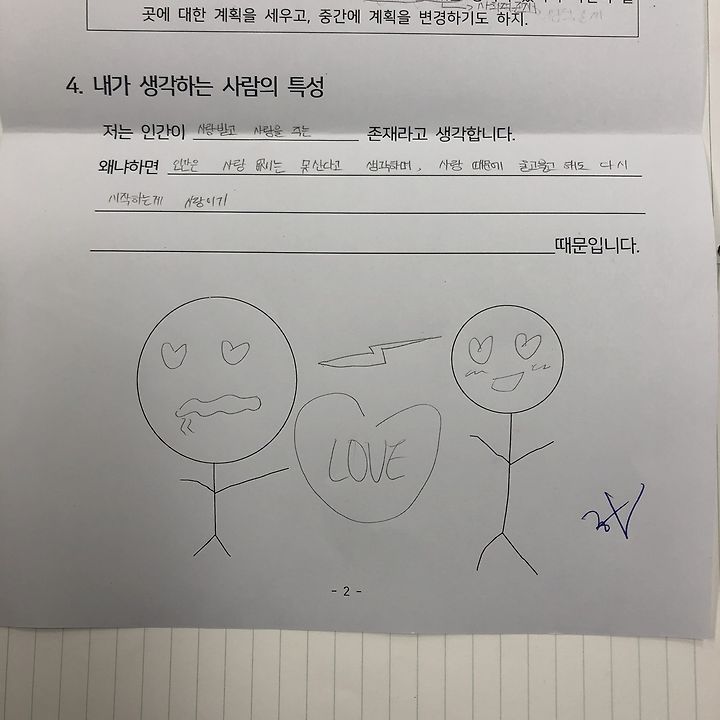 곳에 대한 계획을 세우고, 중간에 계획을 변경하기도 하지.
4. 내가 생각하는 사람의 특성
저는 인간이 사랑받고 사랑을 주는 존재라고 생각합니다.
왜냐하면 인간은 사랑 없이는 못산다고 생각하며, 사랑 때문에 울고불고 해도 다시
시작하는게 사랑이기
때문입니다.
LOVE
- 2 -